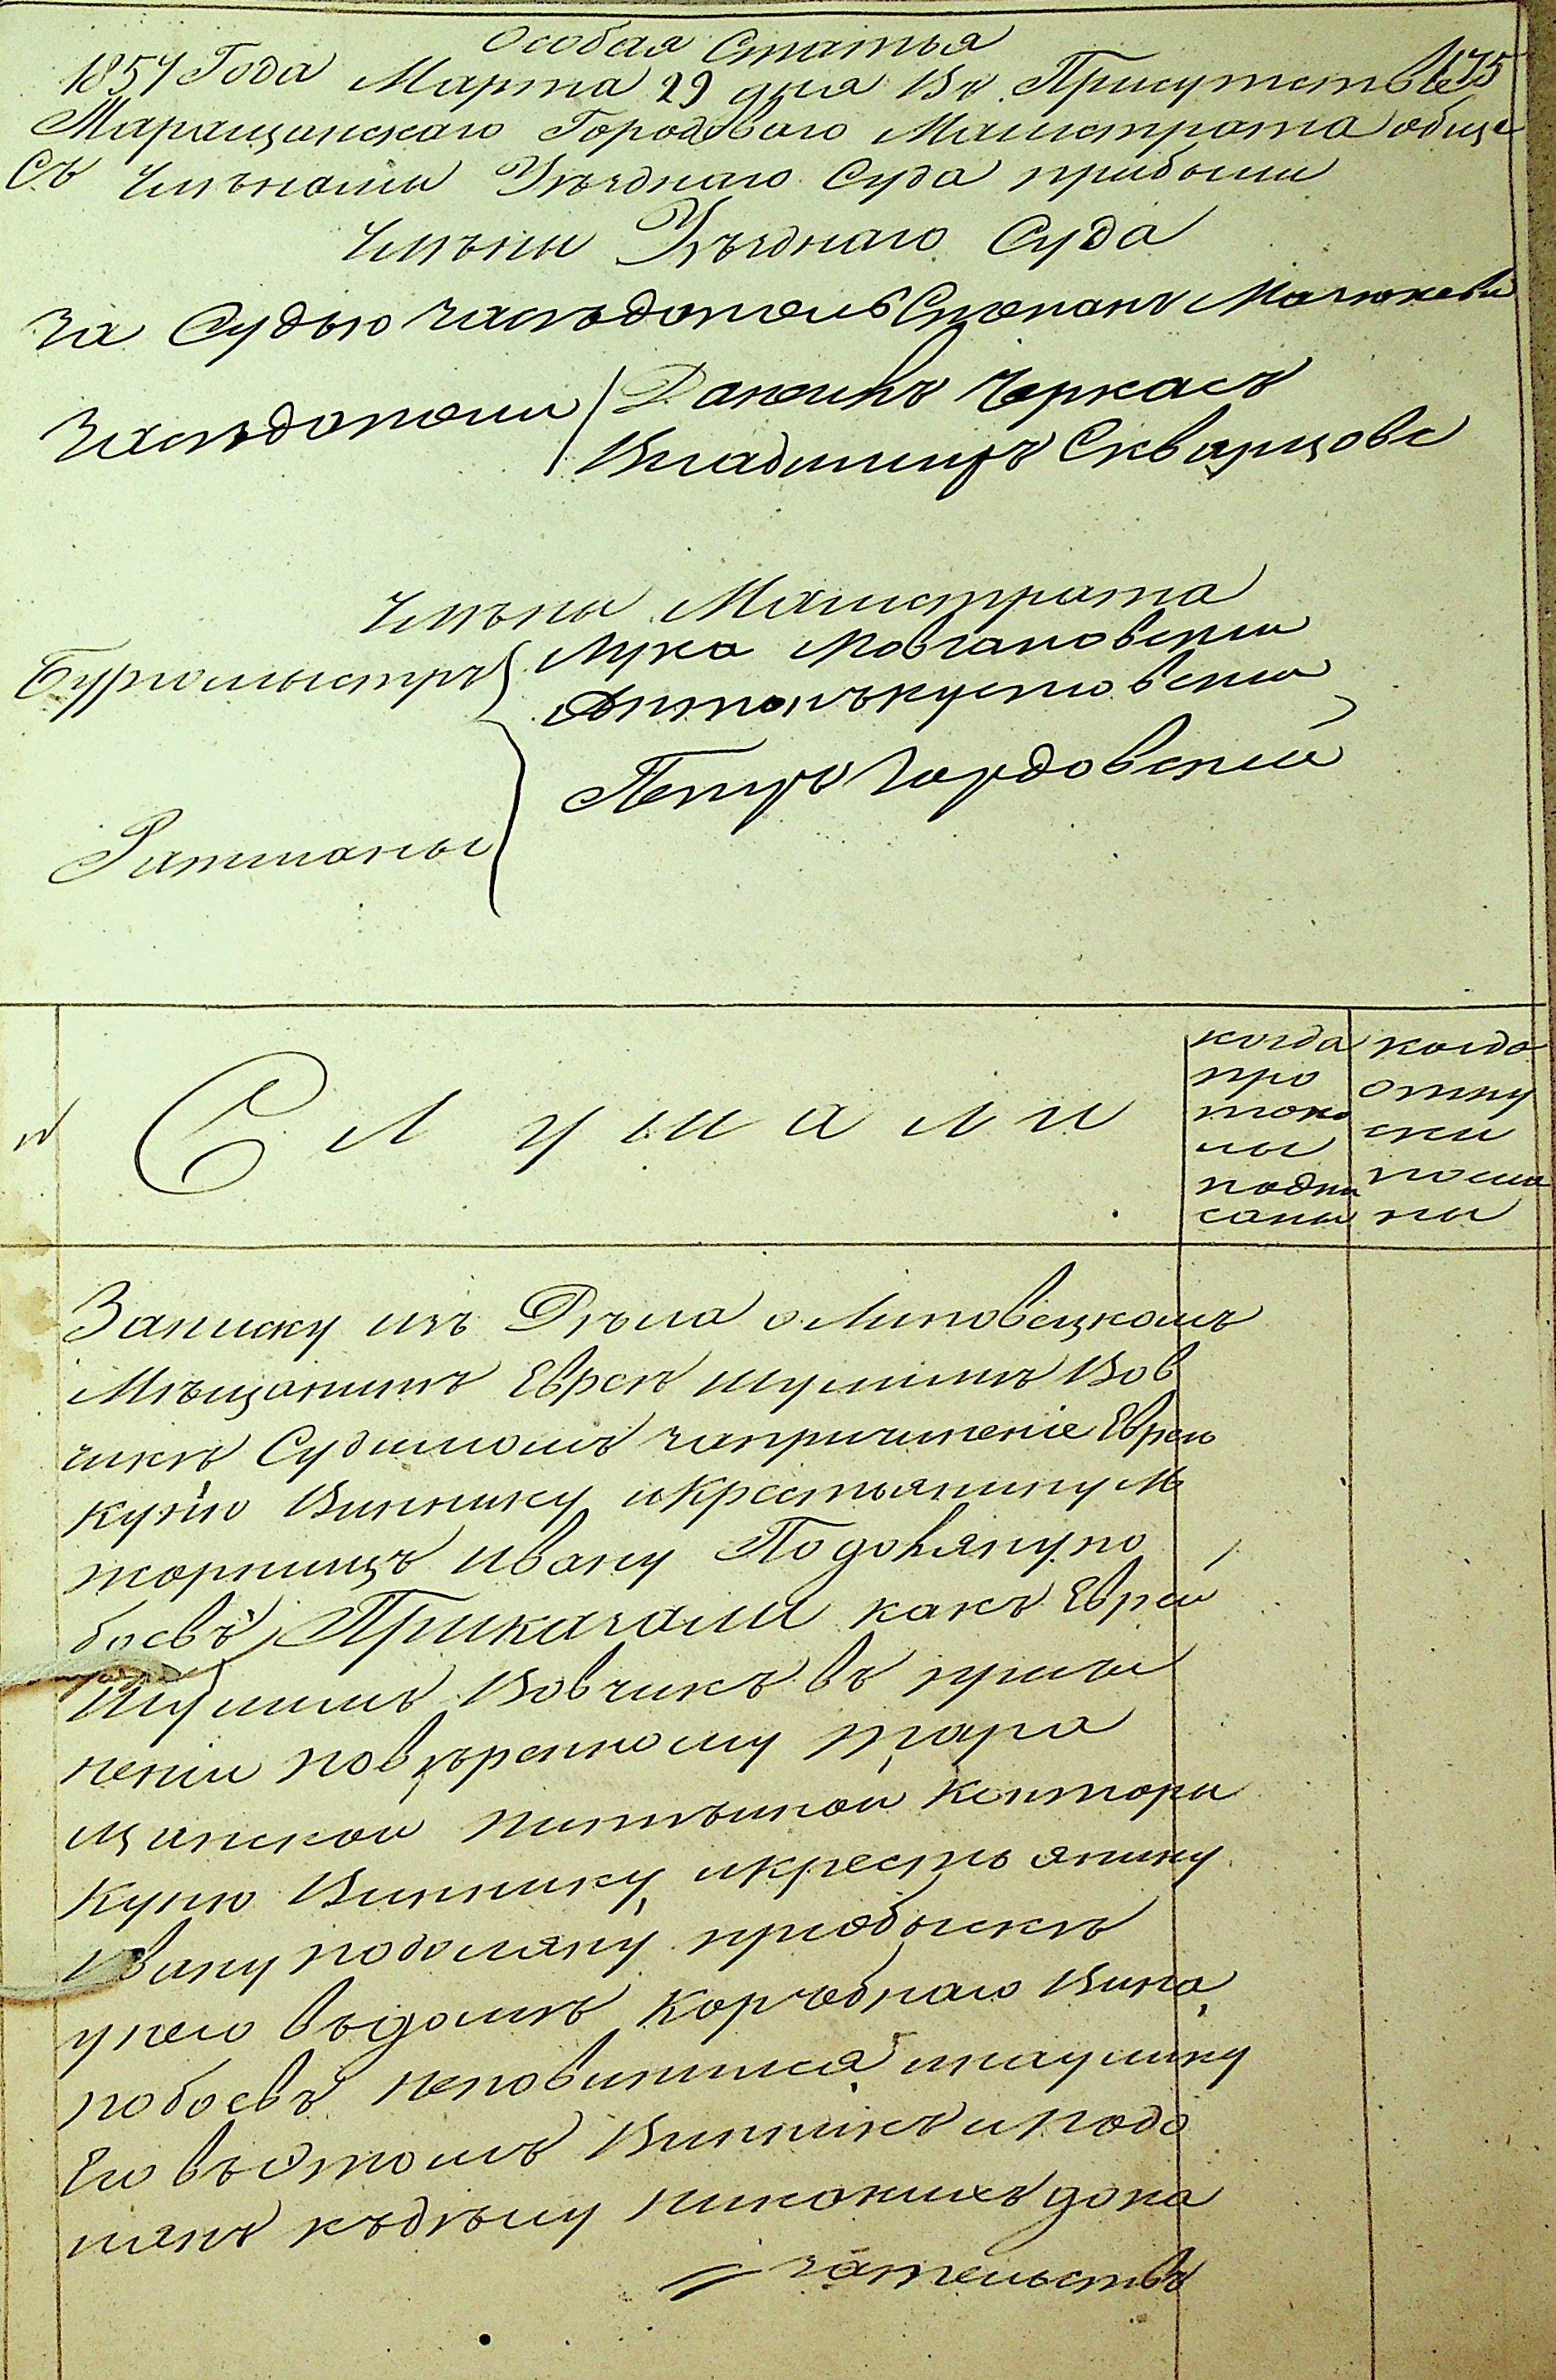 Особая Статья
1857 Года Марта 29 дня Въ Присутствіе 475
Таращанскаго Городоваго Магистрата обще
Съ Членами Уѣзднаго Суда прибыли
Члѣны Уѣзднаго Суда
За Судью Засѣдатель Степанъ
Засѣдатели Даніилъ Черкасъ
Владиміръ
Члѣны Магистрата
Бургомыстръ Лука Мовчановскій
Антонъ
Петръ Гордовскій
Ратманы
№
Слушали
когда
про
токо
лы
подпи
саны
когда
отпу
ски
посла
ны
Записку изъ Дѣла о Липовецкомъ
Мѣщанинѣ Евреѣ Шулимѣ Вов
чикѣ Судимомъ запричиненіе Еврею
Кунію Виннику икрестьянину М
жорнищъ Ивану Подоляну по
боевъ, Приказали какъ Еврей
Шулимъ Вовчикъ въ причи
неніи повѣренному тара
щанской питѣйной Конторы
Куню Виннику икрестьянину
Ивану подоляну приобыскѣ
унего въдомѣ Корчебнаго Вина
побоевъ неповинился инаулику
Его въэтомъ Винникъ и подо
лянъ къдѣлу никакихъ дока
= зательствъ